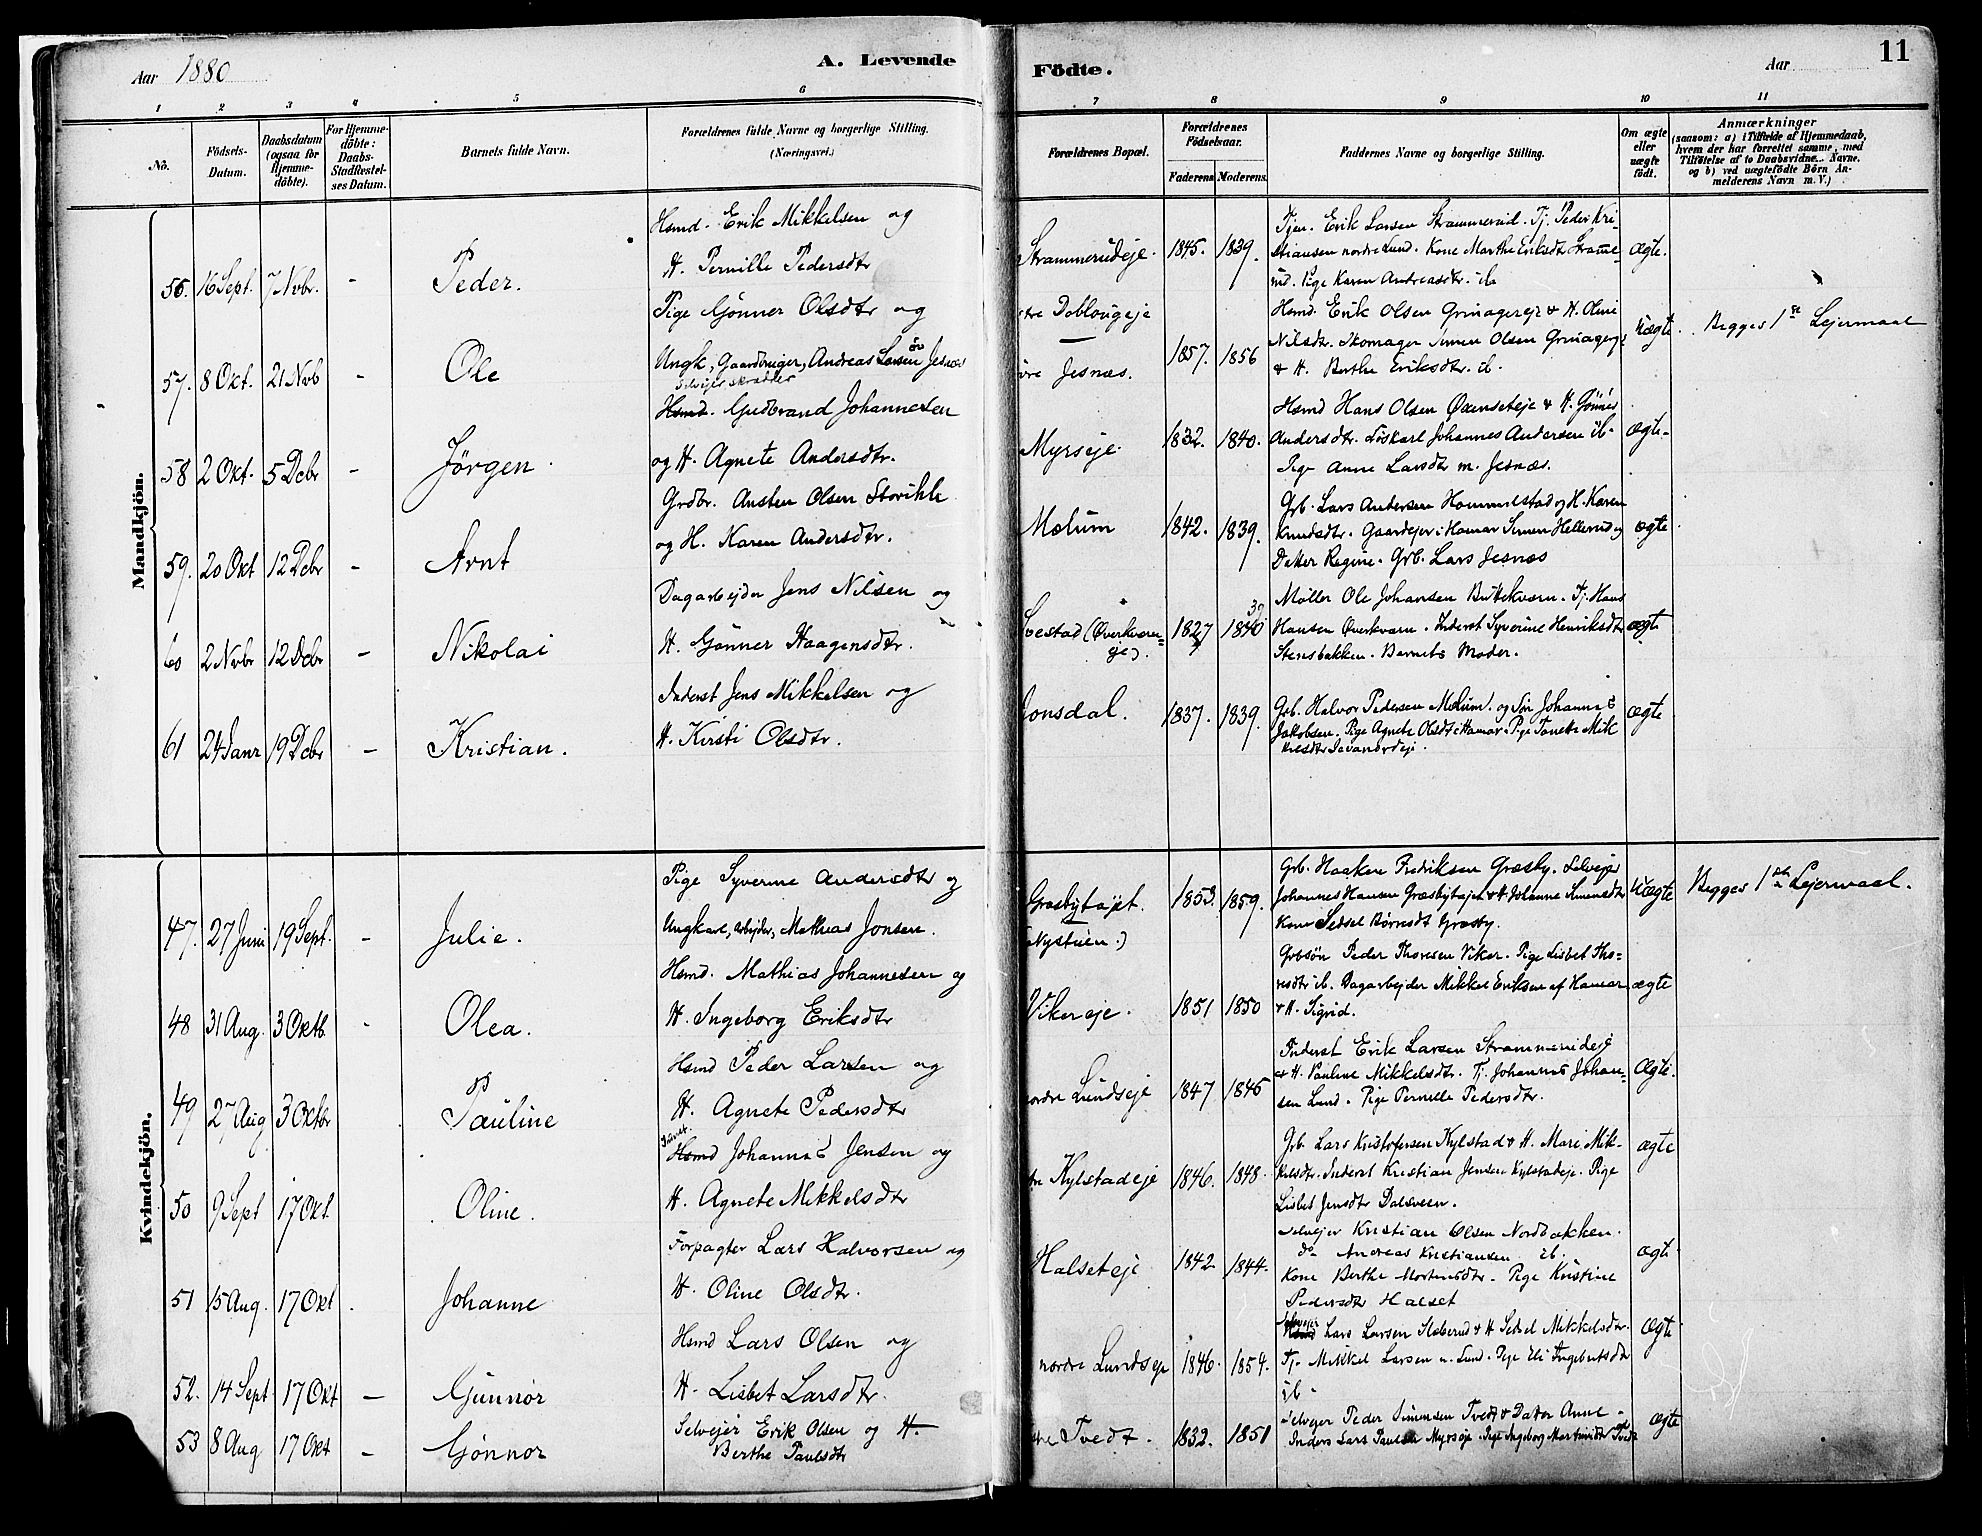 Aar 1880
A. Levende
Födte.
Aar
11
1 2 3 4 5 6 7 8 9 10 11
No.
Födsels-
Datum.
Daabsdatum
(ogsaa for
Hjemme-
döbte).
For Hjemme-
döbte:
Daabs-
Stadfestel-
ses Datum.
Barnets fulde Navn.
Forældrenes fulde Navne og borgerlige Stilling.
(Næringsvei.)
Forældrenes Bopæl.
Forældrenes
Födselsaar.
Faderens. Moderens.
Faddernes Navne og borgerlige Stilling.
Om ægte
eller
uægte
födt.
Anmærkninger
(saasom: a) i Tilfælde af Hjemmedaab,
hvem der har forrettet samme, med
Tilföielse af to Daabsvidners Navne.
og b) ved uægtefödte Börn An-
melderens Navn m. V.)
Mandkjön.
56. 16 Sept. 7 Novbr. - Peder.
Hsmd. Erik Mikkelsen og
H. Pernille Pedersdtr
Strammerudeje. 1845. 1839.
Tjen. Erik Larsen Strammerud. Tj. Peder Kri-
stiansen nordre Lund. Kone Marthe Eriksdtr Stramme-
rud. Pige Karen Andreasdtr. ib
ægte.
57. 8 Okt. 21 Nvb - Ole
Pige Gønner Olsdtr og
Ungk, Gaardbruger, Andreas Larsen Jesnæs
Doblougeje
Jesnæs. 1857. 1856
Hsmd. Erik Olsen Grinagereje & H. Oline
Nilsdtr. Skomager Simen Olsen Grinagereje
& H. Berthe Eriksdtr. ib.
Uægte. Begges 1ste Lejermaal
58 2 Okt. 5 Dcbr - Jörgen
Selvejer skrædder
Hsmd. Gudbrand Johannesen
og H. Agnete Andersdtr.
Myrseje. 1832. 1840.
Hsmd Hans Olsen Oxenseteje & H. Gönner
Andersdtr. Löskarl Johannes Andersen ib-
Pige Anne Larsdtr m. Jesnæs.
ægte.
59. 20 Okt 12 Dcbr - Arnt
Grdbr. Austen Olsen Storihle
og H. Karen Andersdtr.
Melum 1842. 1839.
Grb. Lars Andersen Hommelstad og H. Karen
Knudsdtr. Gaardejer i Hamar Simen Hellerud og
Datter Regine. Grb. Lars Jesnæs
ægte
60 2 Nvbr 12 Dcbr - Nikolai
Dagarbejder Jens Nilsen og
H. Gønner Haagensdtr.
Svestad (Øverkværn-
eje). 1827 1840 39
Møller Ole Johansen Buttekværn. Tj. Hans
Hansen Øverkværn. Inderst Syverine Henriksdtr
Stensbakken. Barnets Moder.
ægte
61 24 Janr 19 Dcbr - Kristian.
Inderst Jens Mikkelsen og
H. Kirsti Olsdtr.
Jonsdal. 1837. 1839.
Grb. Halvor Pedersen Melum. og Sön Johannes
Jakobsen. Pige Agnete Olsdtr i Hamar. Pige Tonette Mik
kelsdtr
ægte
Kvindekjön.
47. 27 Juni 19 Sept. - Julie.
Pige Syverine Andersdtr og
Ungkarl, Arbejder, Mathias Jonsen.
Græsbytajet.
(Nystuen.) 1853. 1859.
Grb. Haaken Fredriksen Græsby. Selvejer
Johannes Hansen Græsbytajet & H. Johanne Simensdtr
Kone Sedsel Börresdt Græsby.
Uægte Begges 1ste Lejermaal.
48 31 Aug. 3 Oktb. - Olea.
Hsmd. Mathias Johannesen og
H. Ingeborg Eriksdtr
Vikereje. 1851 1850
Grbsön Peder Thoresen Viker. Pige Lisbet Tho-
resdtr ib. Dagarbejder Mikkel Eriksen af Hamar
& H. Sigrid.
ægte
49 27 Aug 3 Oktbr Pauline
Hsmd Peder Larsen og
H. Agnete Pedersdtr
nordre Lundseje 1847 1845
Inderst Erik Larsen Strammerudeje
& H. Pauline Mikkelsdtr. Tj. Johannes Johan-
sen Lund. Pige Pernille Pedersdtr.
Ægte.
50 9 Sept 17 Okt. Oline.
Inderst
Hsmd Johannes Jensen og
H. Agnete Mikkelsdtr
Kylstadeje 1846. 1848.
Grb. Lars Kristofersen Kylstad & H. Mari Mik-
kelsdtr. Inderst Kristian Jensen Kylstadeje. Pige
Lisbet Jensdtr Dalsveen.
ægte
51 15 Aug. 17 Okt . Johanne
Forpagter Lars Halvorsen og
H. Oline Olsdtr.
Halseteje 1842 1844.
Selvejer Kristian Olsen Nordbakken.
do Andreas Kristiansen ib.
Kone Berthe Mortensdtr. Pige Kristine
Pedersdtr Halset
ægte.
52. 14 Sept 17 Okt - Gunnor
Hsmd Lars Olsen og
H. Lisbet Larsdtr.
nordre Lundseje 1846. 1854.
Selvejer
Hsmd Lars Larsen Sleberud & H Sedsel Mikkelsdtr.
Tj. Mikkel Larsen n. Lund. Pige Eli Ingebretsdtr
ib.
Ægte
53 8 Aug 17 Okt - Gønnor
Selvejer Erik Olsen og H.
Berthe Paulsdtr
Tvedt. 1832. 1851
Selvejer Peder Simensen Tvedt & Datter Anne
Inders Lars Paulsen Myrseje. Pige Ingeborg Martinsdtr Tvedt
ægte